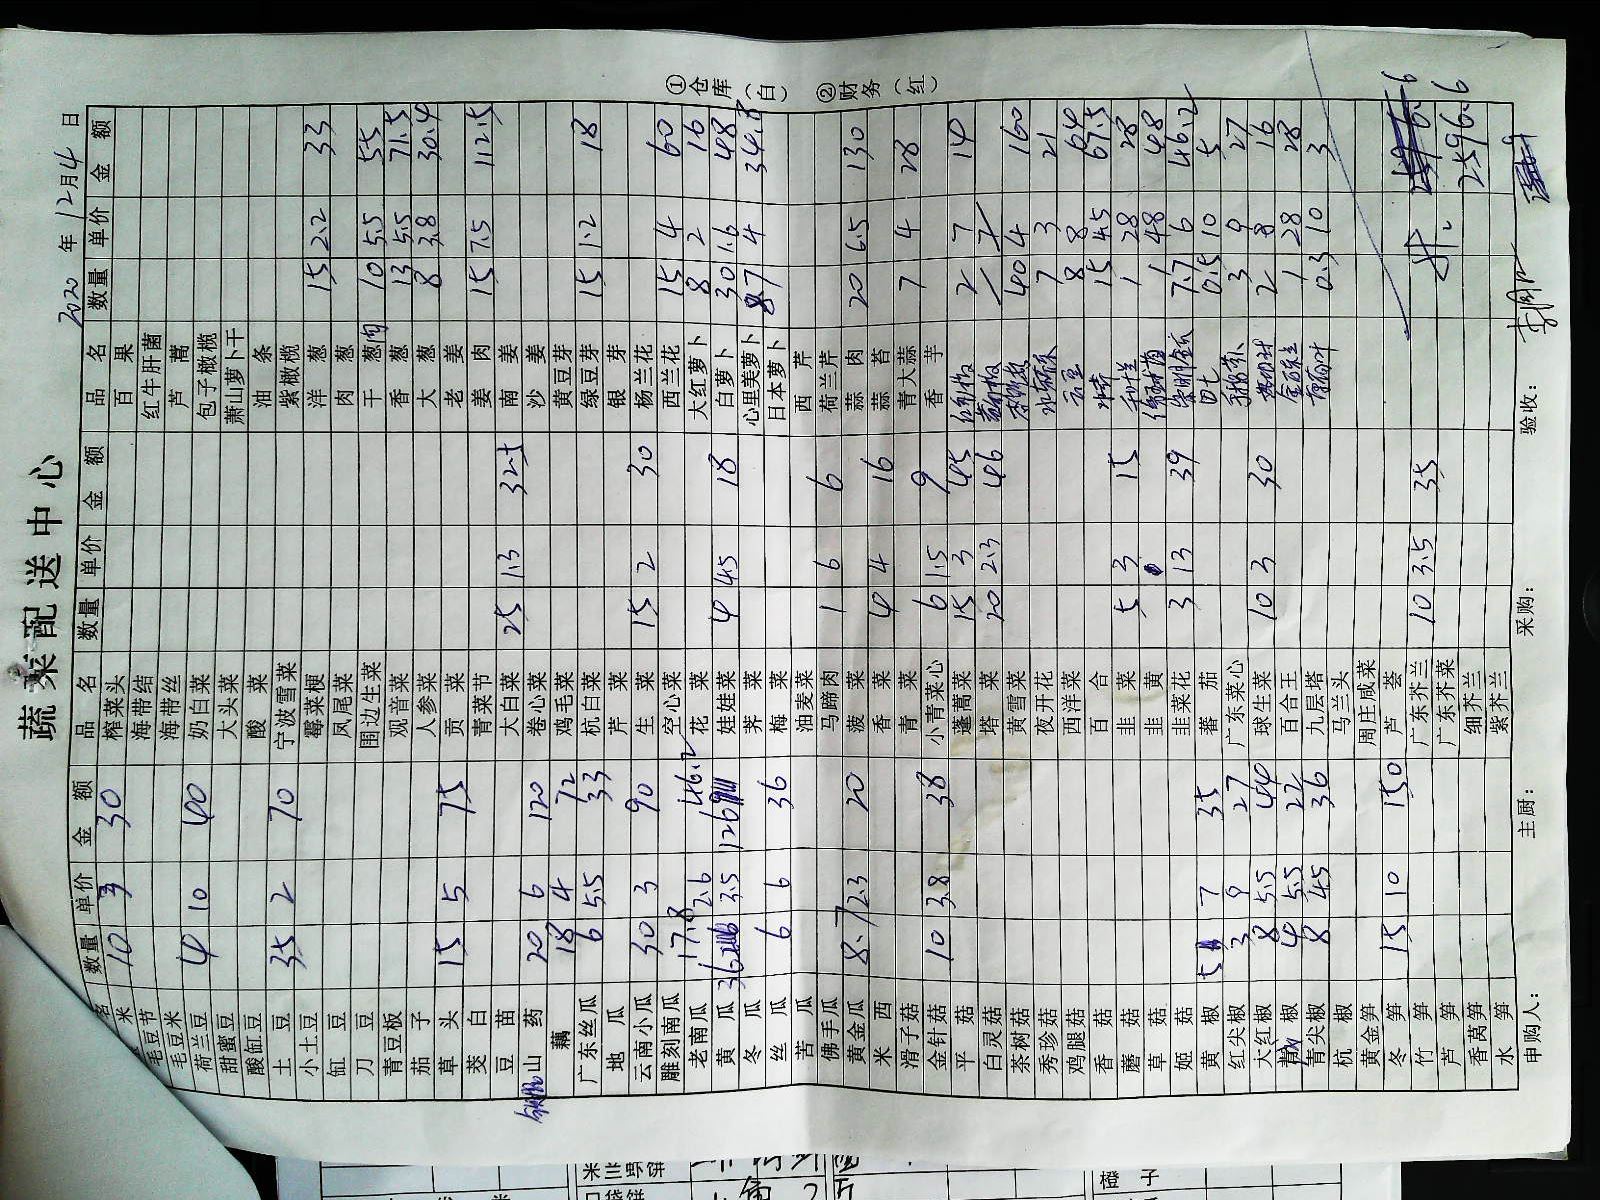 蔬菜配送中心
2020 年 12月14 日
名 数量 单价 金额 品名 数量 单价 金额 品名 数量 单价 金额
米 10 3 30 榨菜头 百果
毛豆节 海带结 红牛肝菌
毛豆米 海带丝 芦蒿
荷兰豆 4 10 40 奶白菜 包子橄榄
甜蜜豆 大头菜 萧山萝卜干
酸缸豆 酸菜 油条
土豆 35 2 70 宁波雪菜 紫橄榄
小土豆 霉菜梗 洋葱 15 2.2 33
缸豆 凤尾菜 肉葱
刀豆 围边生菜 干葱肉 10 5.5 55
青豆板 观音菜 香葱 13 5.5 71.5
茄子 人参菜 大葱 8 3.8 30.4
草头 15 5 75 贡菜 老姜
茭白 青菜节 姜肉 15 7.5 112.5
豆苗 大白菜 25 1.3 32.5 南姜
山药 20 6 120 卷心菜 沙姜
藕 18 4 72 鸡毛菜 黄豆芽
广东丝瓜 6 5.5 33 杭白菜 绿豆芽 15 1.2 18
地瓜 芹菜 银芽
云南小瓜 30 3 90 生菜 15 2 30 杨兰花
雕刻南瓜 空心菜 西兰花 15 4 60
老南瓜 17.8 2.6 46.2 花菜 大红萝卜 8 2 16
黄瓜 36 3.5 126 娃娃菜 4 4.5 18 白萝卜 30 1.6 48
冬瓜 荠菜 心里美萝卜 8.7 4 34.8
丝瓜 6 6 36 梅菜 日本萝卜
苦瓜 油麦菜 西芹
佛手瓜 马蹄肉 1 6 6 荷兰芹
黄金瓜 8.7 2.3 20 菠菜 蒜肉 20 6.5 130
米西 香菜 4 4 16 蒜苔
滑子菇 青菜 青大蒜 7 4 28
金针菇 10 3.8 38 小青菜心 6 1.5 9 香芋
平菇 蓬蒿菜 15 3 45 2 7 14
白灵菇 塔菜 20 2.3 46
茶树菇 黄雪菜 40 4 160
秀珍菇 夜开花 7 3 21
鸡腿菇 西洋菜 8 8 64
香菇 百合 15 4.5 67.5
蘑菇 韭菜 5 3 15 1 28 28
草菇 韭黄 1 48 48
姬菇 韭菜花 3 13 39 7.7 6 46.2
黄椒 5 7 35 蕃茄 0.5 10 5
红尖椒 3 9 27 广东菜心 3 9 27
大红椒 8 5.5 44 球生菜 10 3 30 2 8 16
青椒 4 5.5 22 百合王 1 28 28
青尖椒 8 4.5 36 九层塔 0.3 10 3
杭椒 马兰头
黄金笋 周庄咸菜
冬笋 15 10 150 芦荟
竹笋 广东芥兰 10 3.5 35
芦笋 广东芥菜
香莴笋 细芥兰 2596.6
水笋 紫芥兰
申购人： 主厨： 采购： 验收：
①仓库（白） ②财务（红）